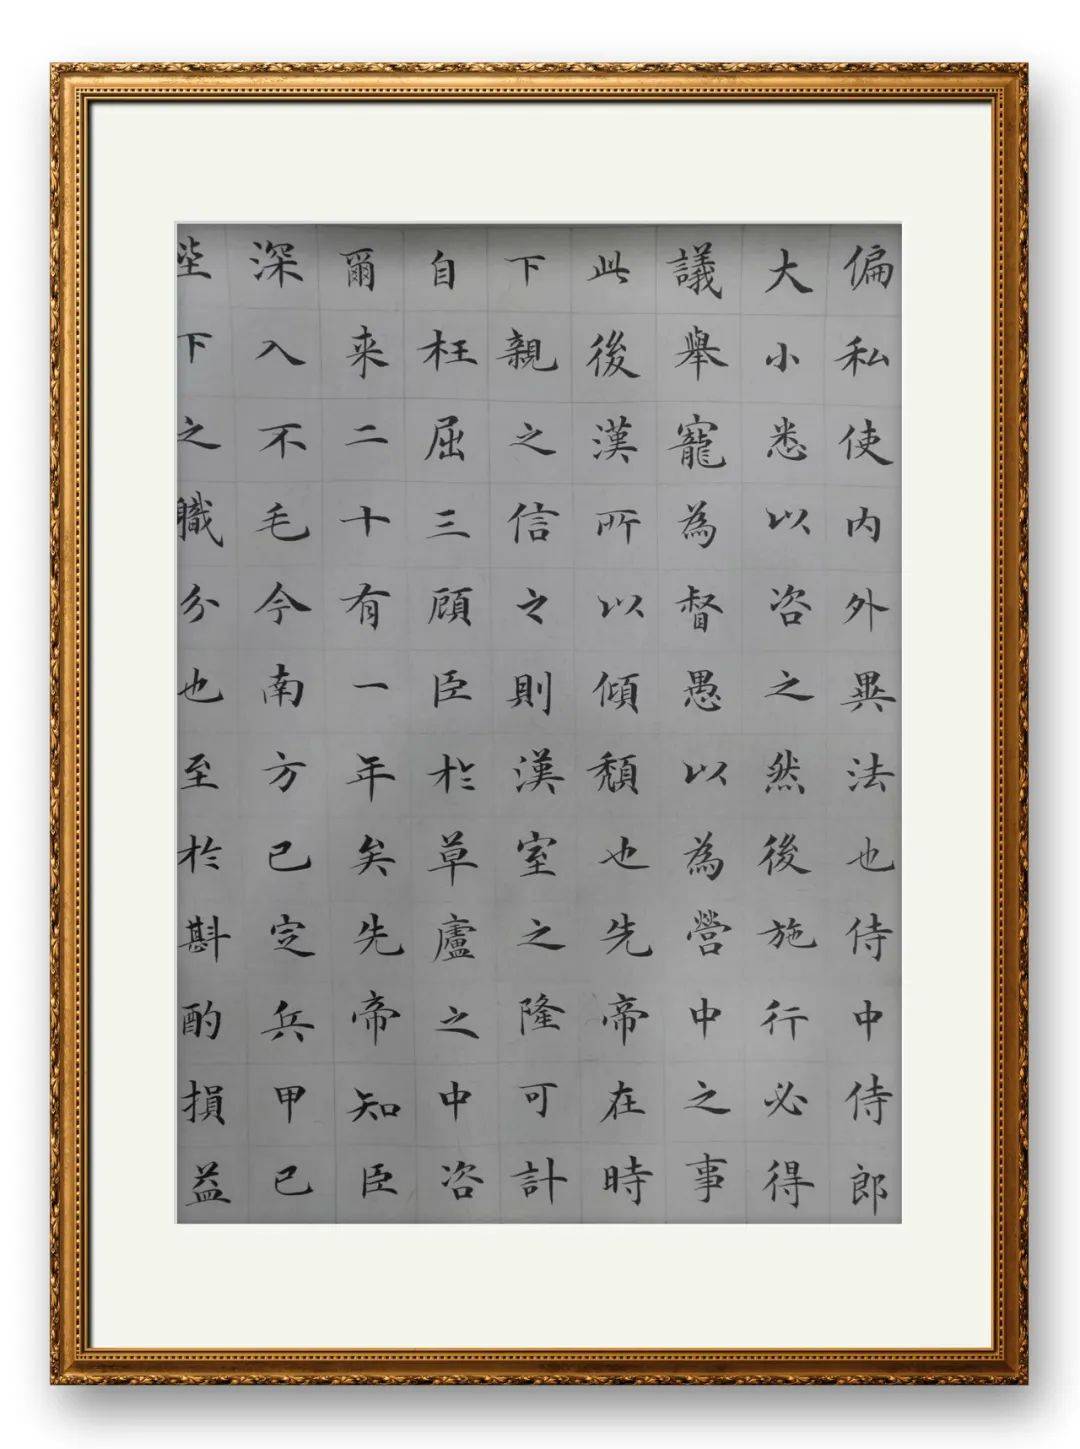 偏私使内外異法也侍中侍郎
大小悉以咨之然後施行必得
議舉寵為督愚以為營中之事
此後漢所以傾頹也先帝在時
下親之信之則漢室之隆可計
自枉屈三顧臣於草廬之中咨
爾来二十有一年矣先帝知臣
深入不毛今南方已定兵甲已
陛下之職分也至於斟酌損益